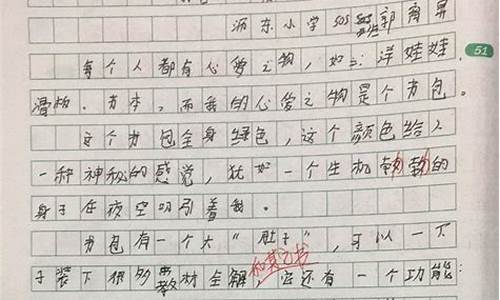 沥东小学505班郭奔昇
每个人都有心爱之物，如：洋娃娃、
滑板、书本，而我的心爱之物是个书包。
51
这个书包全身绿色，这个颜色给人
一种神秘的感觉，犹如一个生机勃勃的
身子在夜空吸引着我。
书包有一个大“肚子”，可以一下
子装下很多教材全解和其它书它还有一个功能